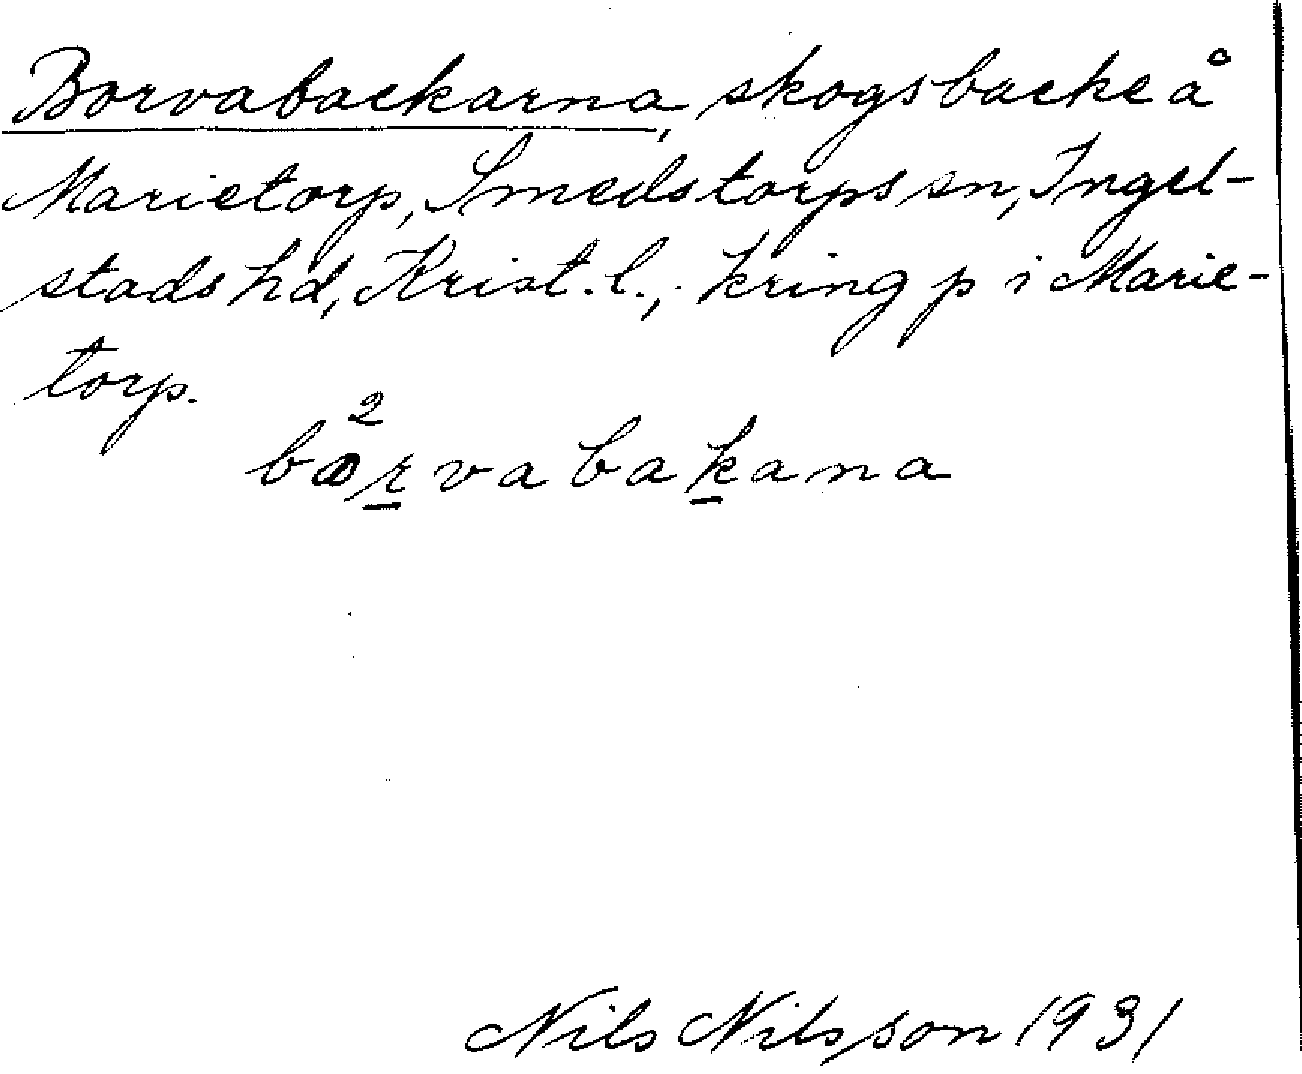 Borvabackarna, skogsbacke å
Marietorp, Smedstorps sn, Ingel-
stads hd, Krist. l., kring p i Marie-
torp.
2
borvabakana
Nils Nilsson 1931